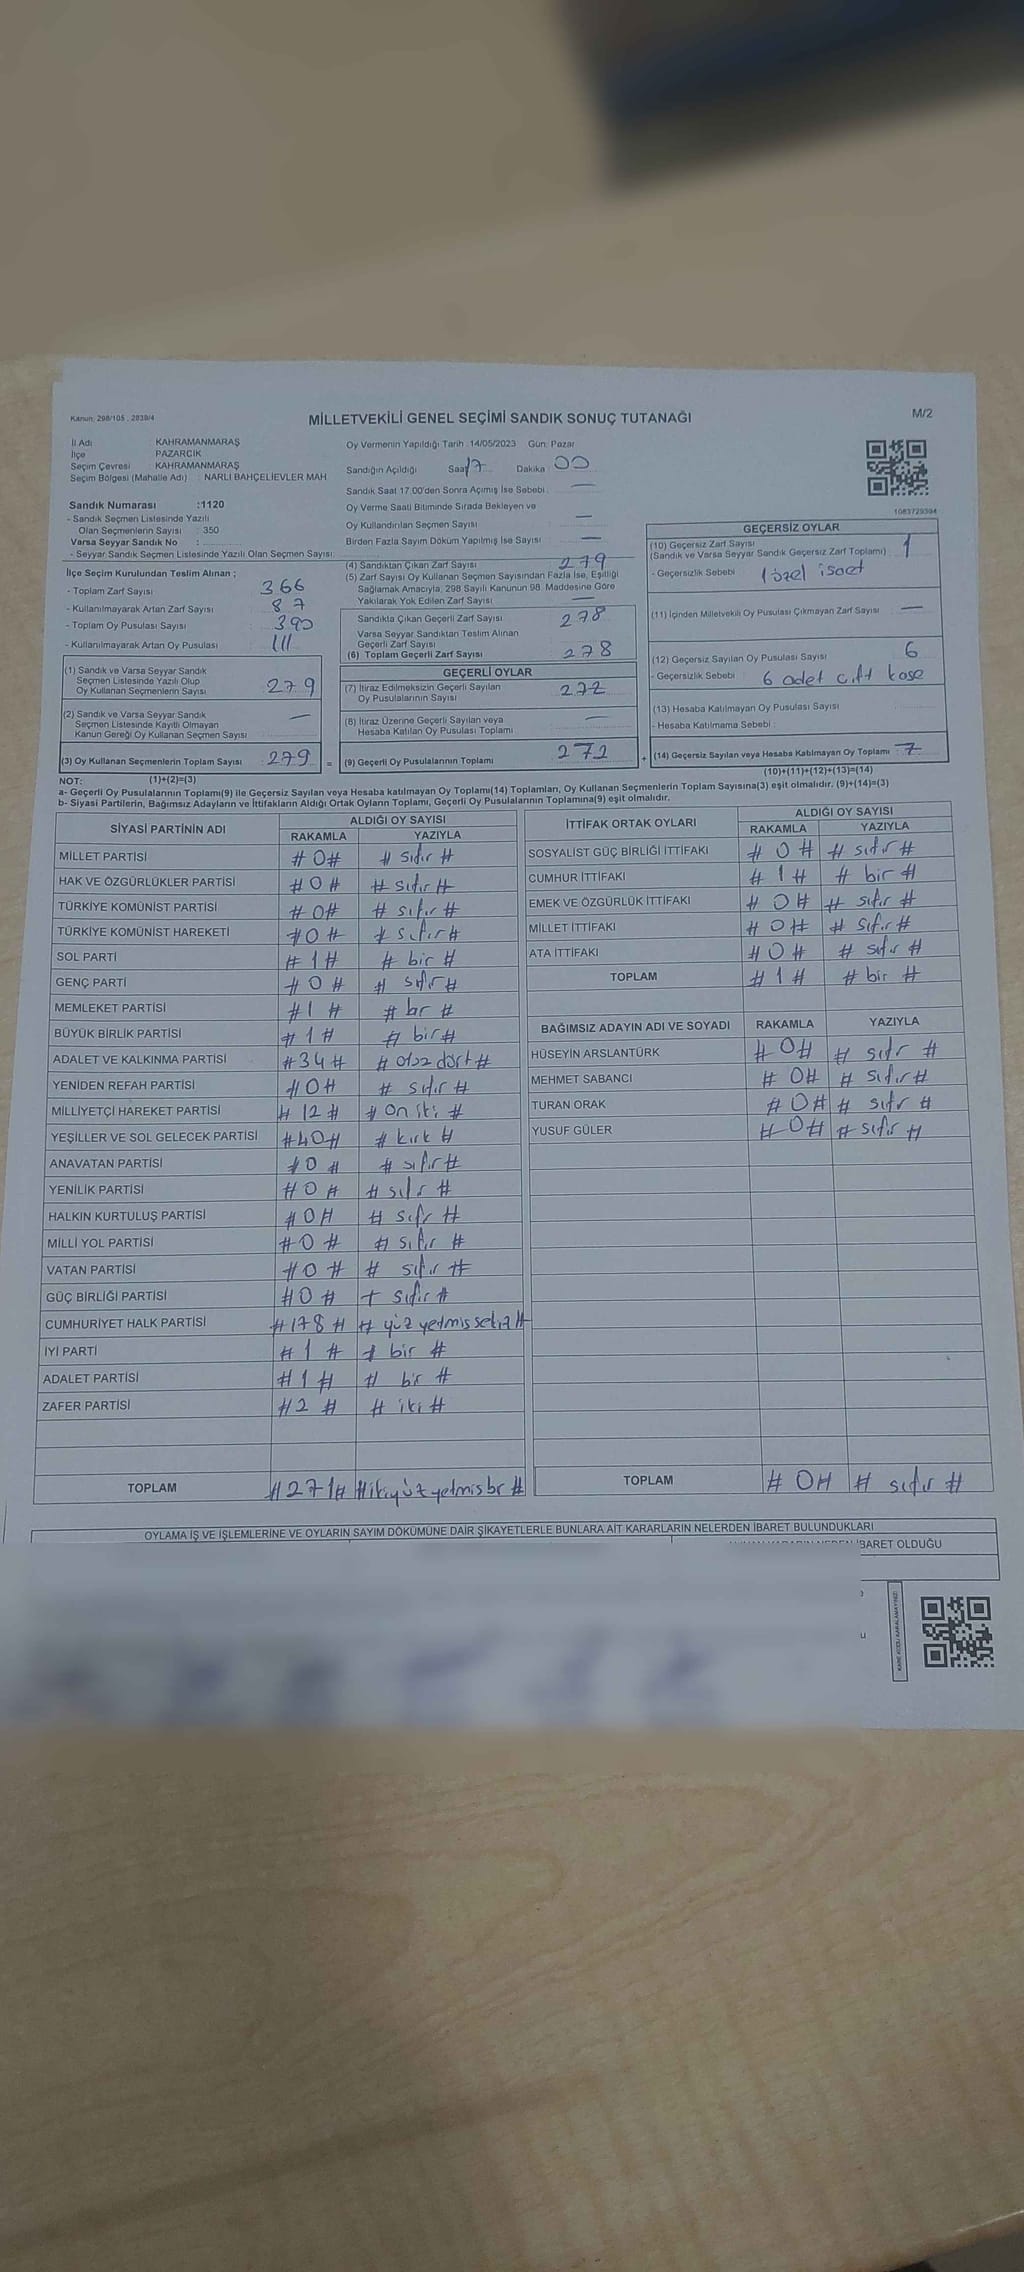 Kanun: 298/105 , 2839/4
MİLLETVEKİLİ GENEL SEÇİMİ SANDIK SONUÇ TUTANAĞI
M/2
İl Adı KAHRAMANMARAŞ
İlçe PAZARCIK
Seçim Çevresi KAHRAMANMARAŞ
Seçim Bölgesi (Mahalle Adı) : NARLI BAHÇELİEVLER MAH
Sandık Numarası :1120
- Sandık Seçmen Listesinde Yazılı
Olan Seçmenlerin Sayısı : 350
Varsa Seyyar Sandık No :
- Seyyar Sandık Seçmen Listesinde Yazılı Olan Seçmen Sayısı:
Oy Vermenin Yapıldığı Tarih :14/05/2023 Gün: Pazar
Sandığın Açıldığı Saat 17 Dakika 00
Sandık Saat 17.00'den Sonra Açımış İse Sebebi : —
Oy Verme Saati Bitiminde Sırada Bekleyen ve
Oy Kullandırılan Seçmen Sayısı : —
Birden Fazla Sayım Döküm Yapılmış İse Sayısı : —
1083729394
İlçe Seçim Kurulundan Teslim Alınan ;
- Toplam Zarf Sayısı : 366
- Kullanılmayarak Artan Zarf Sayısı : 87
- Toplam Oy Pusulası Sayısı : 390
- Kullanılmayarak Artan Oy Pusulası : 111
(1) Sandık ve Varsa Seyyar Sandık
Seçmen Listesinde Yazılı Olup
Oy Kullanan Seçmenlerin Sayısı : 279
(2) Sandık ve Varsa Seyyar Sandık
Seçmen Listesinde Kayıtlı Olmayan
Kanun Gereği Oy Kullanan Seçmen Sayısı : —
(3) Oy Kullanan Seçmenlerin Toplam Sayısı : 279 =
(4) Sandıktan Çıkan Zarf Sayısı : 279
(5) Zarf Sayısı Oy Kullanan Seçmen Sayısından Fazla İse, Eşitliği
Sağlamak Amacıyla, 298 Sayılı Kanunun 98. Maddesine Göre
Yakılarak Yok Edilen Zarf Sayısı : —
Sandıkta Çıkan Geçerli Zarf Sayısı : 278
Varsa Seyyar Sandıktan Teslim Alınan
Geçerli Zarf Sayısı
(6) Toplam Geçerli Zarf Sayısı : 278
GEÇERLİ OYLAR
(7) İtiraz Edilmeksizin Geçerli Sayılan
Oy Pusulalarının Sayısı : 272
(8) İtiraz Üzerine Geçerli Sayılan veya
Hesaba Katılan Oy Pusulası Toplamı : —
(9) Geçerli Oy Pusulalarının Toplamı : 272 +
GEÇERSİZ OYLAR
(10) Geçersiz Zarf Sayısı
(Sandık ve Varsa Seyyar Sandık Geçersiz Zarf Toplamı) : 1
- Geçersizlik Sebebi : 1 özel isaet
(11) İçinden Milletvekili Oy Pusulası Çıkmayan Zarf Sayısı : —
(12) Geçersiz Sayılan Oy Pusulası Sayısı : 6
- Geçersizlik Sebebi : 6 adet cift kase
(13) Hesaba Katılmayan Oy Pusulası Sayısı :
- Hesaba Katılmama Sebebi :
(14) Geçersiz Sayılan veya Hesaba Katılmayan Oy Toplamı : 7
NOT: (1)+(2)=(3) (10)+(11)+(12)+(13)=(14)
a- Geçerli Oy Pusulalarının Toplamı(9) ile Geçersiz Sayılan veya Hesaba katılmayan Oy Toplamı(14) Toplamları, Oy Kullanan Seçmenlerin Toplam Sayısına(3) eşit olmalıdır. (9)+(14)=(3)
b- Siyasi Partilerin, Bağımsız Adayların ve İttifakların Aldığı Ortak Oyların Toplamı, Geçerli Oy Pusulalarının Toplamına(9) eşit olmalıdır.
SİYASİ PARTİNİN ADI ALDIĞI OY SAYISI
RAKAMLA YAZIYLA
MİLLET PARTİSİ # 0# # sıfır #
HAK VE ÖZGÜRLÜKLER PARTİSİ # 0 # # sıfır #
TÜRKİYE KOMÜNİST PARTİSİ # 0# # sıfır #
TÜRKİYE KOMÜNİST HAREKETİ #0 # # sıfır#
SOL PARTİ # 1# # bir #
GENÇ PARTİ # 0 # # sıfır #
MEMLEKET PARTİSİ #1 # # bır #
BÜYÜK BİRLİK PARTİSİ # 1# # bir#
ADALET VE KALKINMA PARTİSİ #34# # otuz dört #
YENİDEN REFAH PARTİSİ #0# # sıfır #
MİLLİYETÇİ HAREKET PARTİSİ # 12 # # on iki #
YEŞİLLER VE SOL GELECEK PARTİSİ #40# # kırk #
ANAVATAN PARTİSİ #0 # # sıfır #
YENİLİK PARTİSİ #0 # # sıfır #
HALKIN KURTULUŞ PARTİSİ #0# # sıfır #
MİLLİ YOL PARTİSİ #0 # # sıfır #
VATAN PARTİSİ #0 # # sıfır #
GÜÇ BİRLİĞİ PARTİSİ #0 # + sıfır #
CUMHURİYET HALK PARTİSİ #178 # # yüz yetmis sekiz #
İYİ PARTİ # 1 # # bir #
ADALET PARTİSİ #1 # # bir #
ZAFER PARTİSİ #2 # # iki #
TOPLAM #271# #ikiyüz yetmis bir #
İTTİFAK ORTAK OYLARI ALDIĞI OY SAYISI
RAKAMLA YAZIYLA
SOSYALİST GÜÇ BİRLİĞİ İTTİFAKI # 0 # # sıfır #
CUMHUR İTTİFAKI # 1 # # bir #
EMEK VE ÖZGÜRLÜK İTTİFAKI # 0# # sıfır #
MİLLET İTTİFAKI # 0# # sıfır #
ATA İTTİFAKI #0 # # sıfır #
TOPLAM # 1 # # bir #
BAĞIMSIZ ADAYIN ADI VE SOYADI RAKAMLA YAZIYLA
HÜSEYİN ARSLANTÜRK # 0# # sıfır #
MEHMET SABANCI # 0# # sıfır #
TURAN ORAK # 0 # # sıfır #
YUSUF GÜLER # 0# # sıfır #
TOPLAM # 0# # sıfır #
OYLAMA İŞ VE İŞLEMLERİNE VE OYLARIN SAYIM DÖKÜMÜNE DAİR ŞİKAYETLERLE BUNLARA AİT KARARLARIN NELERDEN İBARET BULUNDUKLARI
İBARET OLDUĞU
KARE KODU KARALAMAYINIZ!